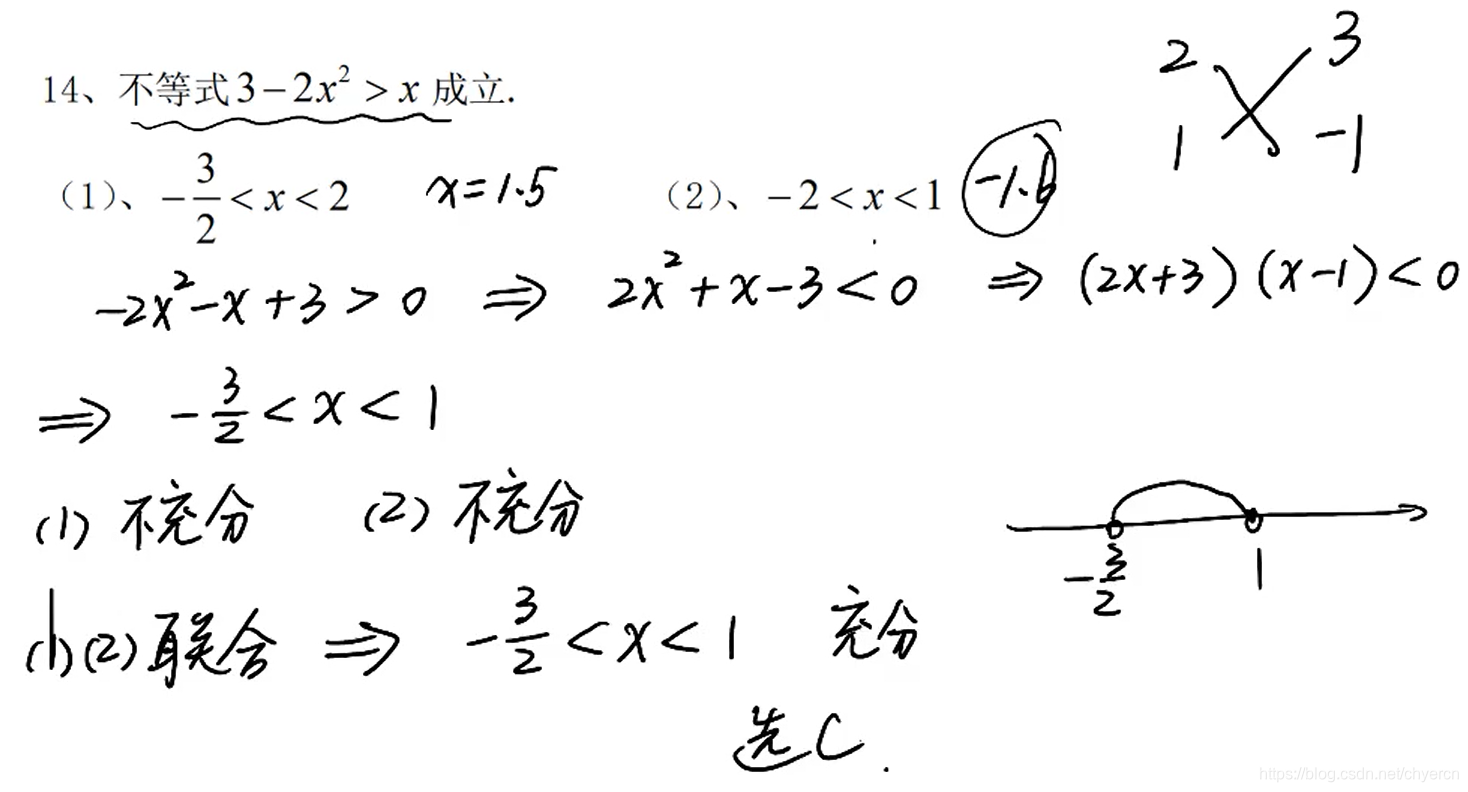 2 3
14、不等式3-2x²>x 成立.
1 -1
(1)、-3/2<x<2 x=1.5 (2)、-2<x<1 -1.6
-2x²-x+3>0 ⇒ 2x²+x-3<0 ⇒ (2x+3)(x-1)<0
⇒ -3/2<x<1
(1) 不充分 (2) 不充分
-3/2 1
(1)(2)联合 ⇒ -3/2<x<1 充分
选C.
https://blog.csdn.net/chyercn